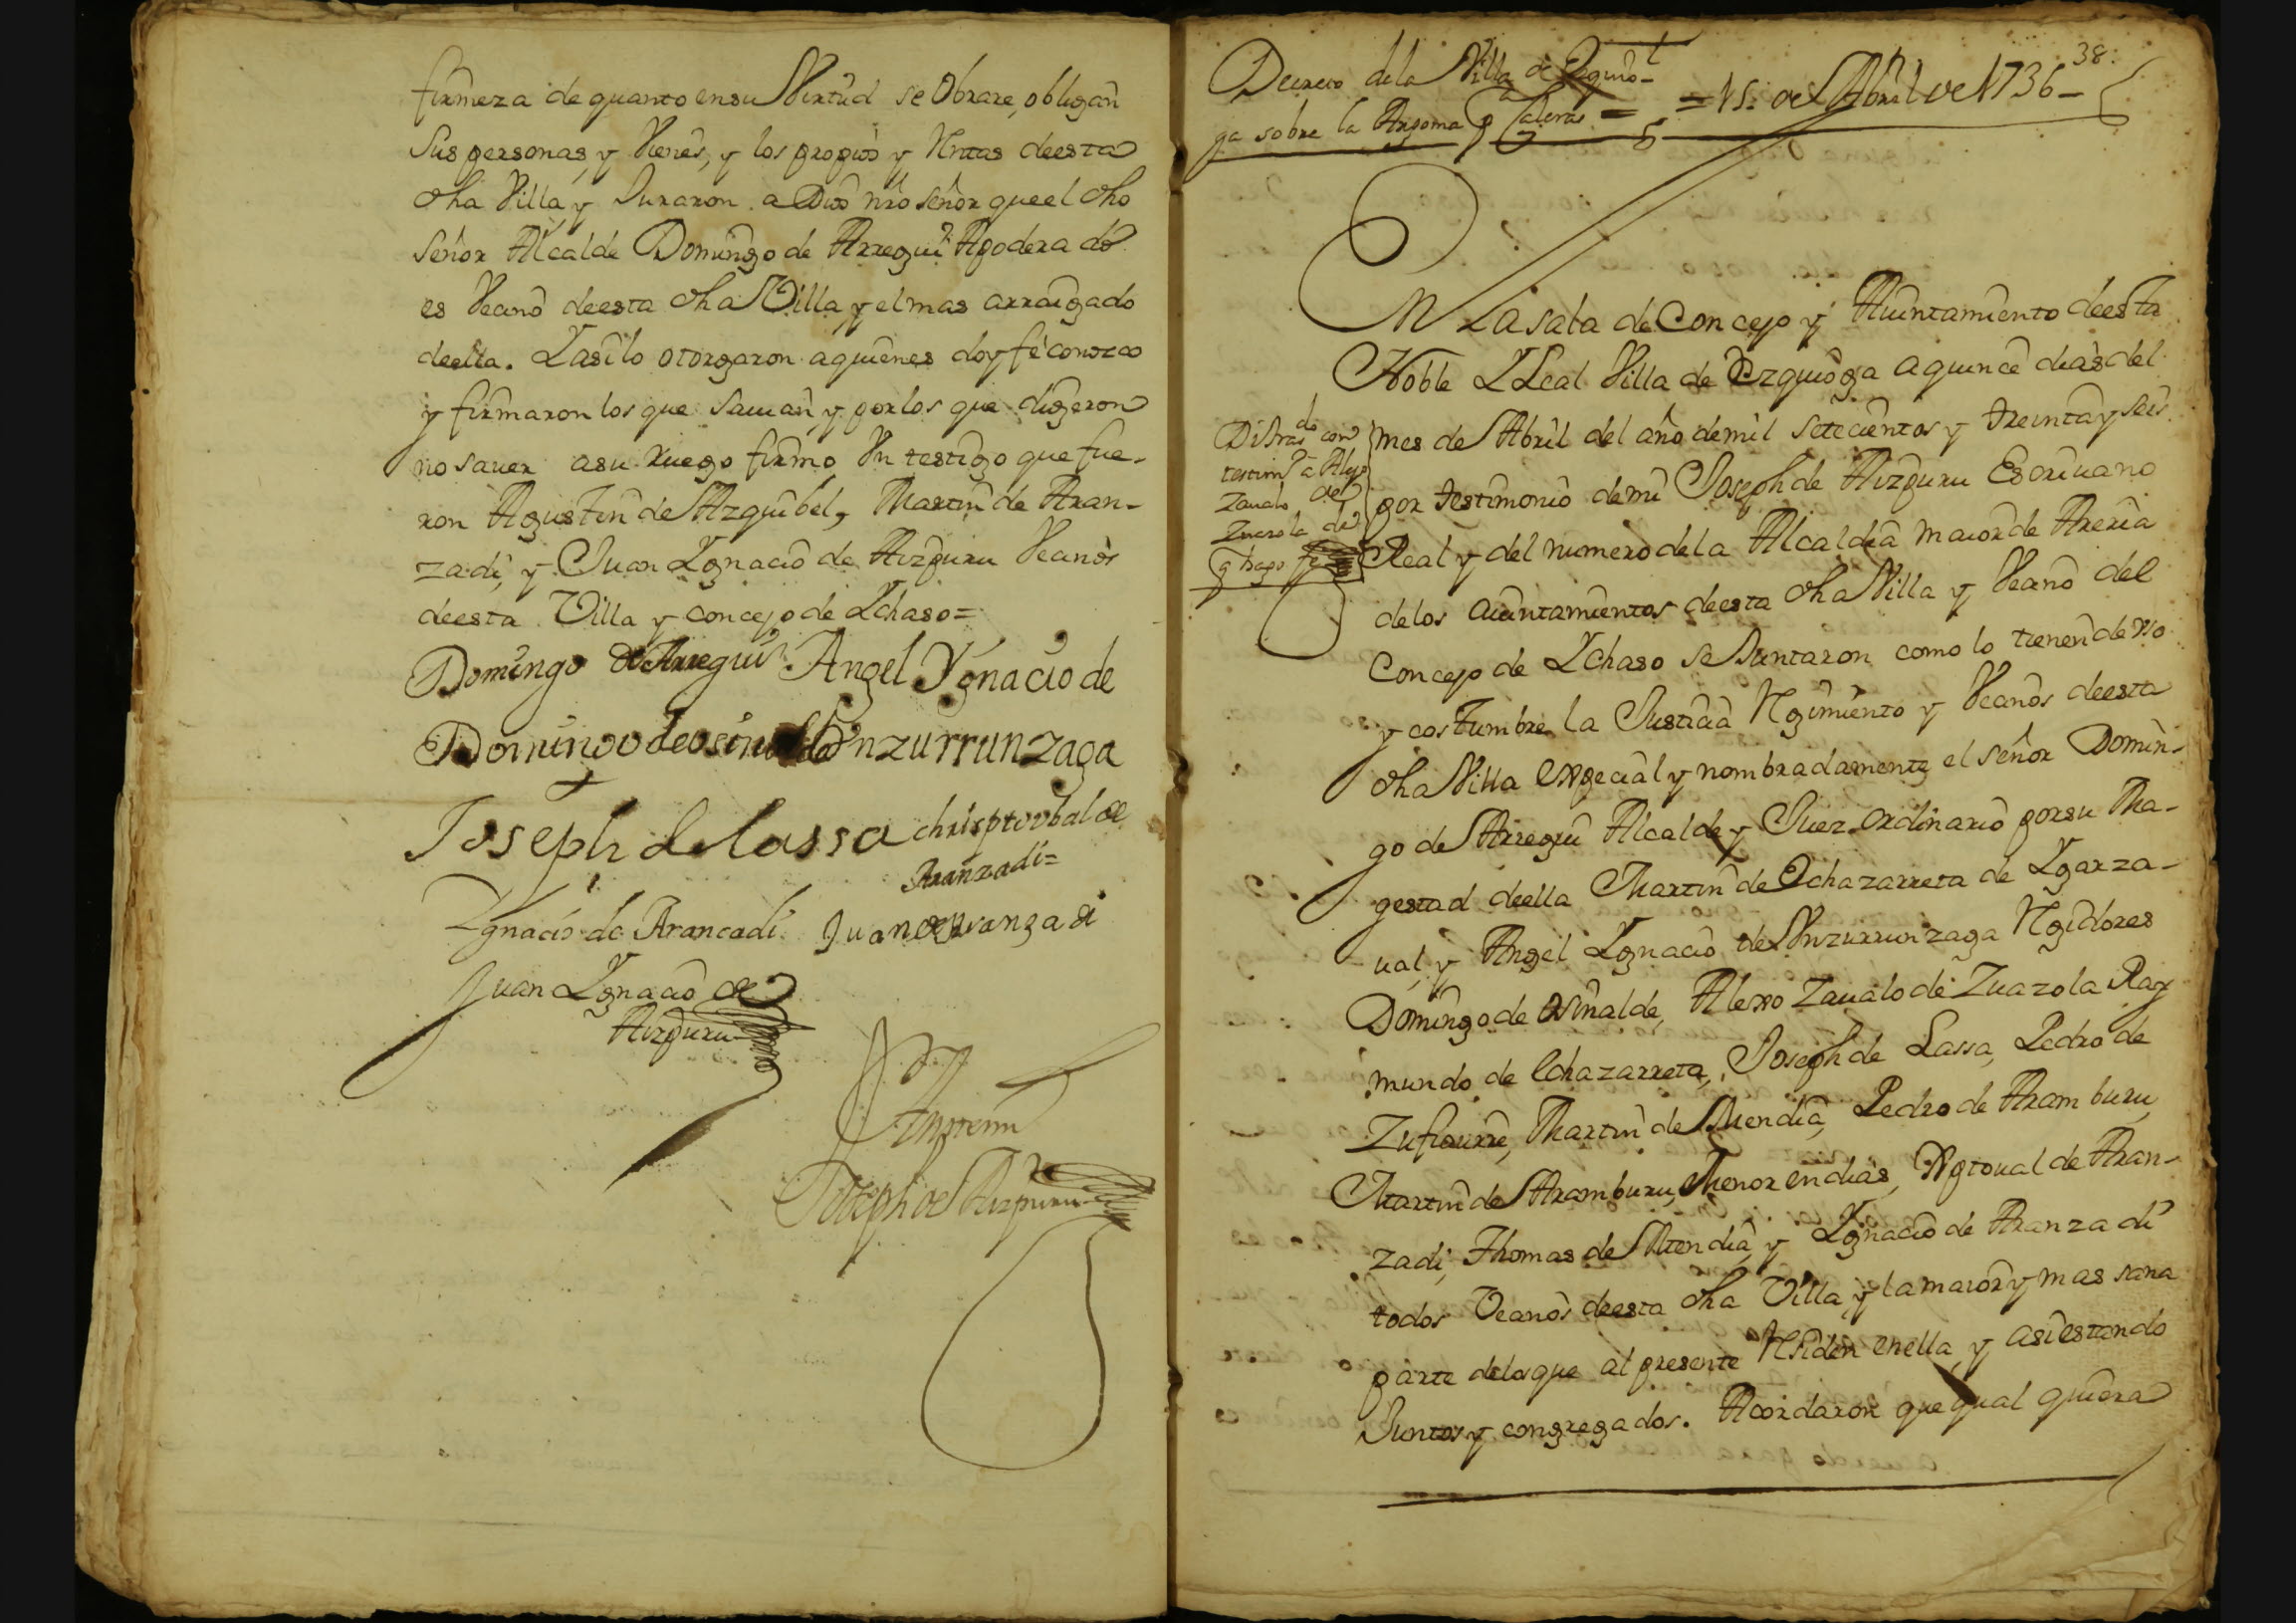 firmeza de quanto en su Virtud se Obrare, obligan
sus personas, y Vienes, y los propios y Rntas de esta
dha Villa, y Juraron a Dios nro Señor que el dho
Señor Alcalde Domingo de Arregui Apoderado
es Vecino de esta dha Villa y el mas arraigado
de ella. Y asi lo otorgaron a quienes doy fé conozco
y firmaron los que savian y por los que digeron
no saver a su Ruego firmo Un testigo que fue-
ron Agustin de Azquibel, Martin de Aran-
zadi, y Juan Ygnacio de Aizpuru Vecinos
de esta Villa y concejo de Ychaso =
Domingo de Arregui Angel Ygnacio de
Domingo de osinalde Vnzurrunzaga
Joseph de Lassa Chrisptoubal de
Aranzadi =
Ygnacio de Arancadi Juan de Aranzadi
Juan Ygnacio de
Aizpuru
Ante mi
Joseph de Aizpuru
38.
Decreto de la Villa de Ezquio-
ga sobre la Argoma y Caleras = = 15. de Abril de 1736 -
En La sala de Concejo y Aiuntamiento de esta
Noble Y Leal Villa de Ezquioga a quince dias del
mes de Abril del año de mil setecientos y treinta y seis
por testimonio de mi Joseph de Aizpuru Escrivano
Real y del numero de la Alcaldia maior de Areria
de los aiuntamientos de esta dha Villa y Vecino del
Concejo de Ychaso se Juntaron como lo tienen de vso
y costumbre la Justicia Rgimiento y Vecinos de esta
dha Villa Expecial y nombradamente el señor Domin-
go de Arregui Alcalde y Juez ordinario por su Ma-
gestad de ella Martin de Echazarreta de Ygarza-
ual, y Angel Ygnacio de Vnzurrunzaga Rgidores
Domingo de Osinalde, Alexo Zaualo de Zuazola Ray
mundo de Echazarreta, Joseph de Lassa, Pedro de
Zufiaurre, Martin de Mendia, Pedro de Aramburu,
Martin de Aramburu Menor en dias, Xptoual de Aran-
zadi, Thomas de Mendia, y Ygnacio de Aranzadi
todos Vecinos de esta dha Villa, y la maior y mas sana
parte de los que al presente Rsiden en ella, y asi estando
Juntos y congregados. Acordaron que qual quiera
Di tras.do con
testim.o a Alexo
Zaualo de
Zuazola de
q hago fe